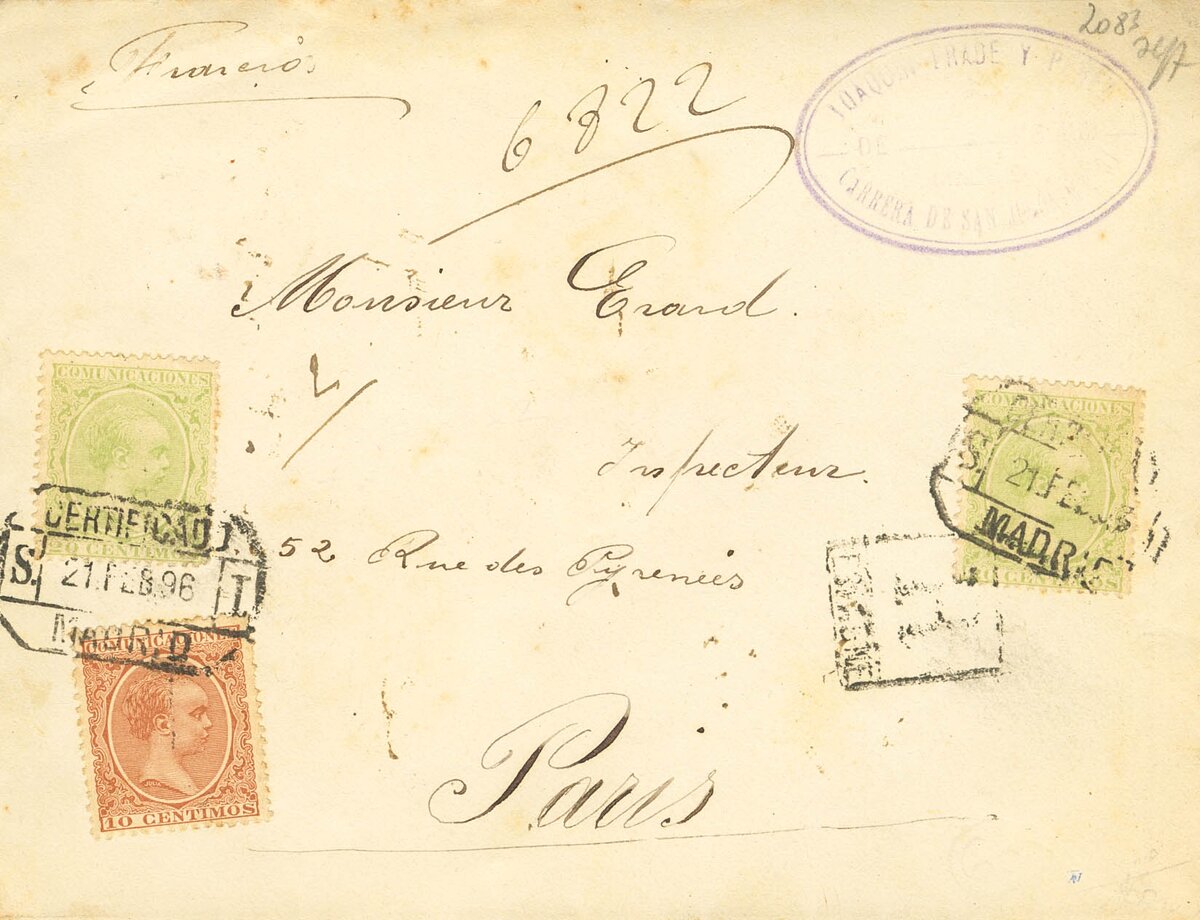 2083
Francia
6822
JOAQUIN FRADE Y
DE
CARRERA DE SAN
Monsieur Erard.
Inspecteur.
52 Rue des Pyrenées
Paris
COMUNICACIONES
20 CENTIMOS
CERTIFICADO.
S. 21.FEB.96 I.
MADRID
COMUNICACIONES
10 CENTIMOS
COMUNICACIONES
S. 21.FEB.96
MADRID
CENTIMOS